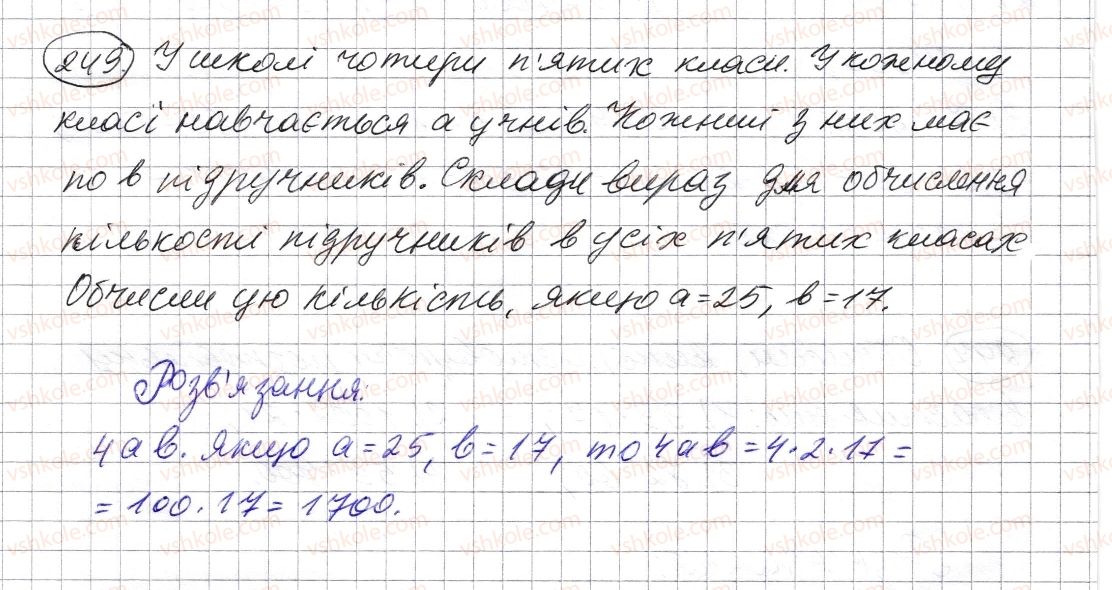 249. У школі чотири п'ятих класи. У кожному
класі навчається a учнів. Кожний з них має
по в підручників. Склади вираз для обчислення
кількості підручників в усіх п'ятих класах
Обчисли цю кількість, якщо a=25, в=17.
Розв'язання:
4ав. Якщо a=25, в=17, то 4ав=4·2·17=
=100·17=1700.